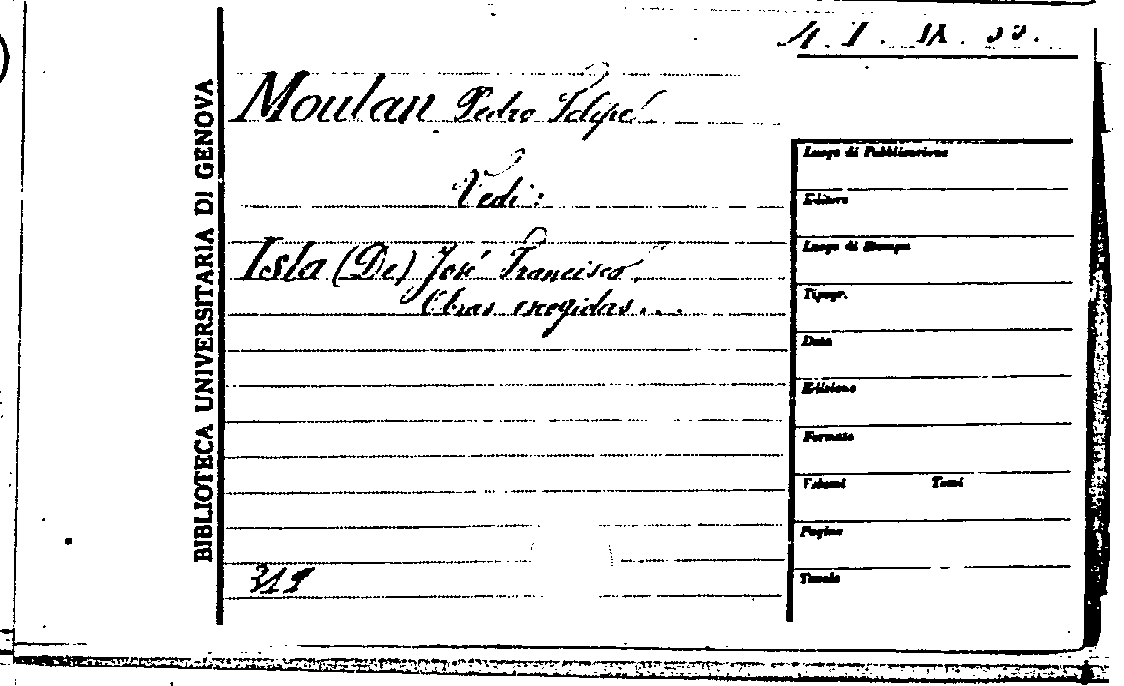 BIBLIOTECA UNIVERSITARIA DI GENOVA
Moulan Pedro Felipe
Vedi:
Isla (De) José Francisco.
Obras escogidas...
319
Luogo di Pubblicazione
Editore
Luogo di Stampa
Tipogr.
Data
Edizione
Formato
Volumi Tomi
Pagine
Tavole